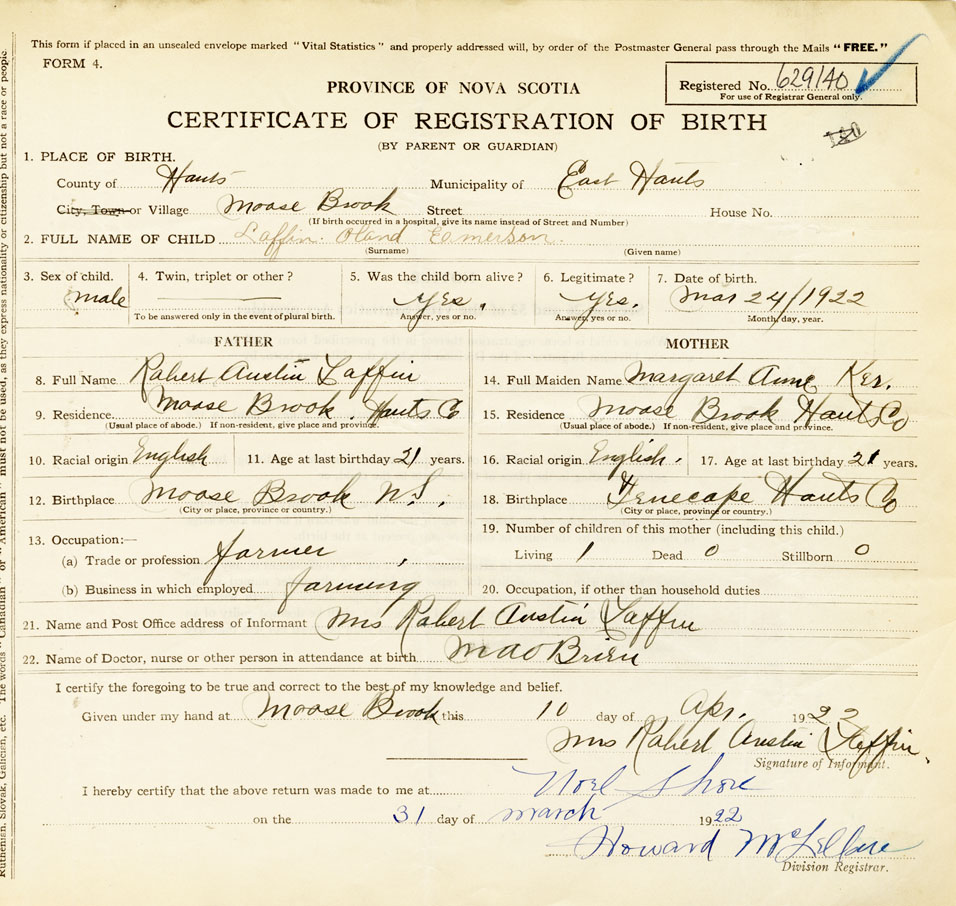 This form if placed in an unsealed envelope marked "Vital Statistics" and properly addressed will, by order of the Postmaster General pass through the Mails "FREE."
FORM 4.
Registered No. 629140
For use of Registrar General only.
PROVINCE OF NOVA SCOTIA
CERTIFICATE OF REGISTRATION OF BIRTH
(BY PARENT OR GUARDIAN)
1. PLACE OF BIRTH.
County of Hants Municipality of East Hants
City, Town or Village Moose Brook Street House No.
(If birth occurred in a hospital, give its name instead of Street and Number)
2. FULL NAME OF CHILD Laffin Oland Eamerson
(Surname) (Given name)
3. Sex of child. 4. Twin, triplet or other? 5. Was the child born alive? 6. Legitimate? 7. Date of birth.
male yes. yes. Mar 24/1922
To be answered only in the event of plural birth. Answer, yes or no. Answer, yes or no. Month, day, year.
FATHER MOTHER
8. Full Name Robert Austin Laffin 14. Full Maiden Name Margaret Anne Ker.
9. Residence Moose Brook. Hants Co 15. Residence Moose Brook Hants Co
(Usual place of abode.) If non-resident, give place and province. (Usual place of abode.) If non-resident, give place and province.
10. Racial origin English 11. Age at last birthday 21 years. 16. Racial origin English. 17. Age at last birthday 21 years.
12. Birthplace Moose Brook N.S. 18. Birthplace Tenecape Hants Co
(City or place, province or country.) (City or place, province or country.)
13. Occupation:— 19. Number of children of this mother (including this child.)
(a) Trade or profession farmer Living 1 Dead 0 Stillborn 0
(b) Business in which employed farming 20. Occupation, if other than household duties
21. Name and Post Office address of Informant Mrs Robert Austin Laffin
22. Name of Doctor, nurse or other person in attendance at birth O Brien
I certify the foregoing to be true and correct to the best of my knowledge and belief.
Given under my hand at Moose Brook this 10 day of Apr. 1922
Mrs Robert Austin Laffin.
Signature of Informant.
I hereby certify that the above return was made to me at Noel Shore
on the 31 day of march 1922
Howard
Division Registrar.
Ruthenian, Slovak, Galician, etc. The words "Canadian" or "American" must not be used, as they express nationality or citizenship but not a race or people.